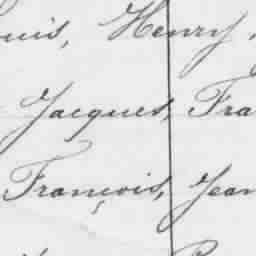 uis, Henry,
Jacques, Fra
François, Jean